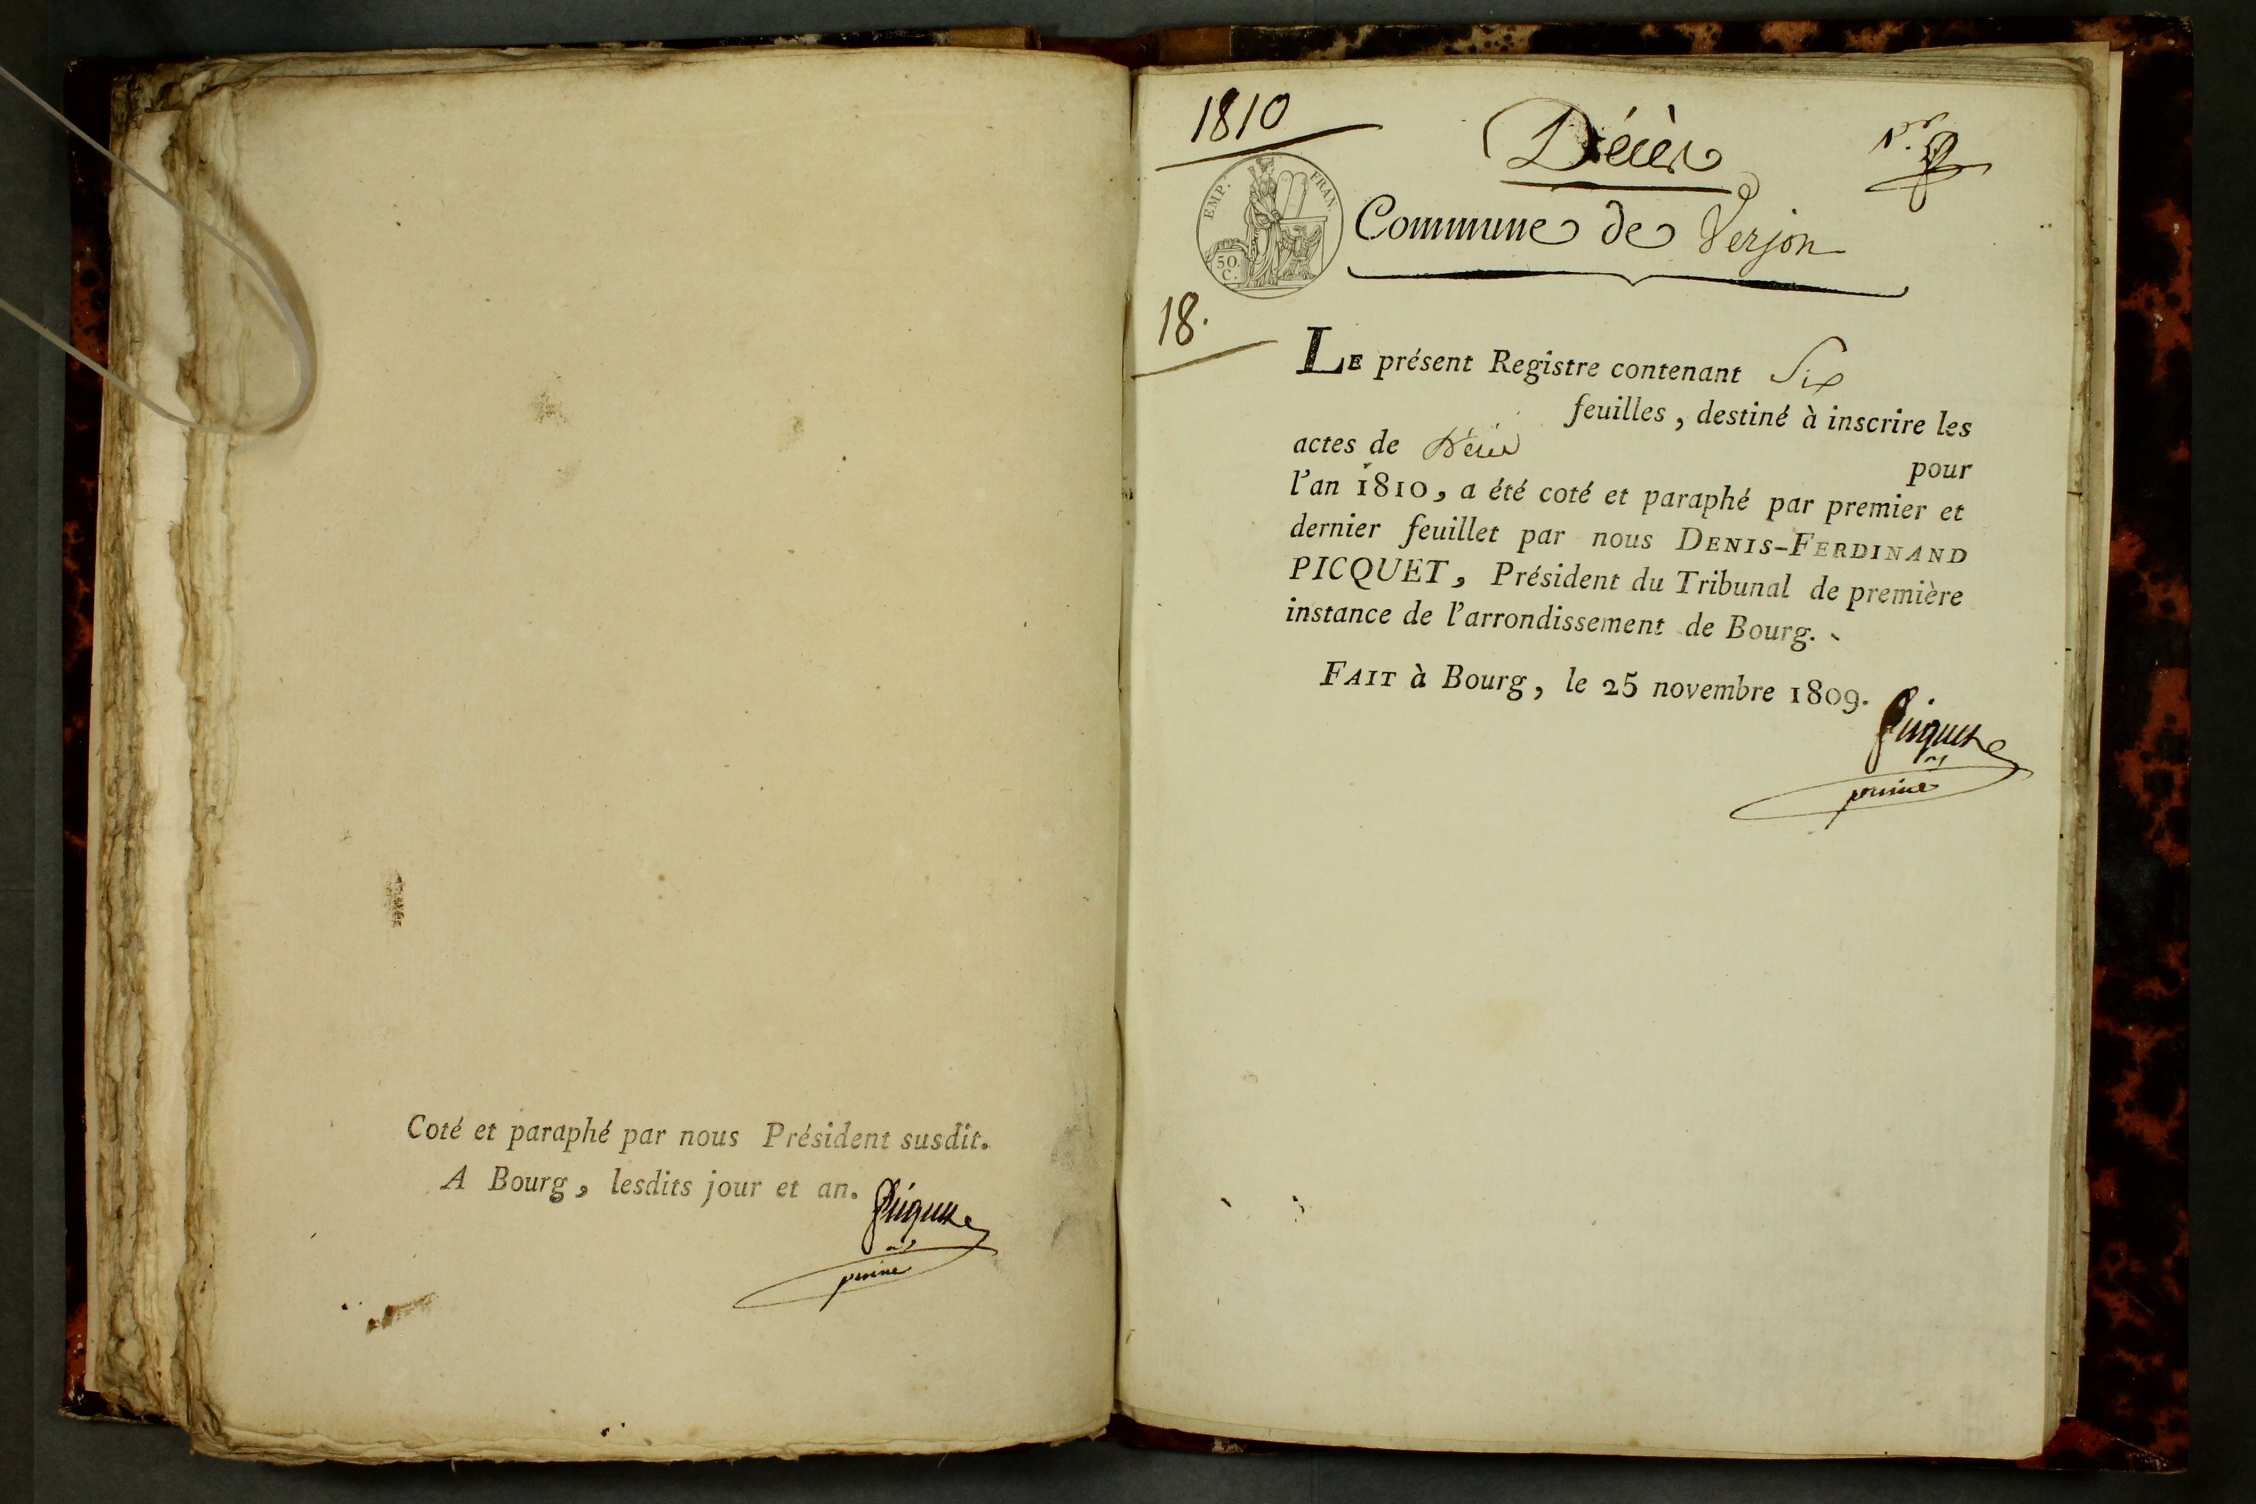 Coté et paraphé par nous Président susdit.
A Bourg, lesdits jour et an.
Picquet
1810
Décès
1er
EMP. FRAN.
50.
C.
Commune de Verjon
18.
LE présent Registre contenant Six
feuilles, destiné à inscrire les
actes de Décès pour
l'an 1810, a été coté et paraphé par premier et
dernier feuillet par nous DENIS-FERDINAND
PICQUET, Président du Tribunal de première
instance de l'arrondissement de Bourg.
FAIT à Bourg, le 25 novembre 1809.
Picquet